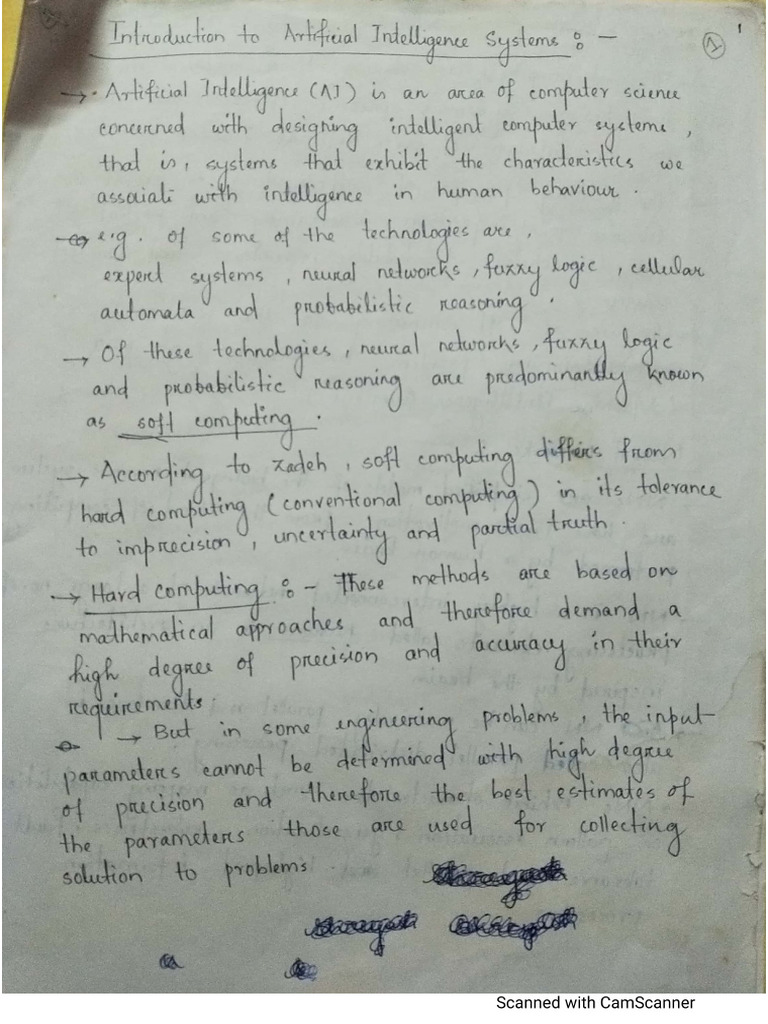 Introduction to Artificial Intelligence Systems : -
1
→ • Artificial Intelligence (AI) is an area of computer science
concerned with designing intelligent computer systems,
that is, systems that exhibit the characteristics we
assoiali with intelligence in human behaviour.
e.g. of some of the technologies are,
expert systems, neural networks, fuzzy logic, cellular
automata and probabilistic reasoning.
→ Of these technologies, neural networks, fuzzy logic
and probabilistic reasoning are predominantly known
as soft computing.
→ According to zadeh, soft computing differs from
hard computing (conventional computing) in its tolerance
to imprecision, uncertainty and partial truth.
→ Hard computing : - These methods are based on
mathematical approaches and therefore demand a
high degree of precision and accuracy in their
requirements.
→ But in some engineering problems, the input
parameters cannot be determined with high degree
of precision and therefore the best estimates of
the parameters those are used for collecting
solution to problems.
Scanned with CamScanner